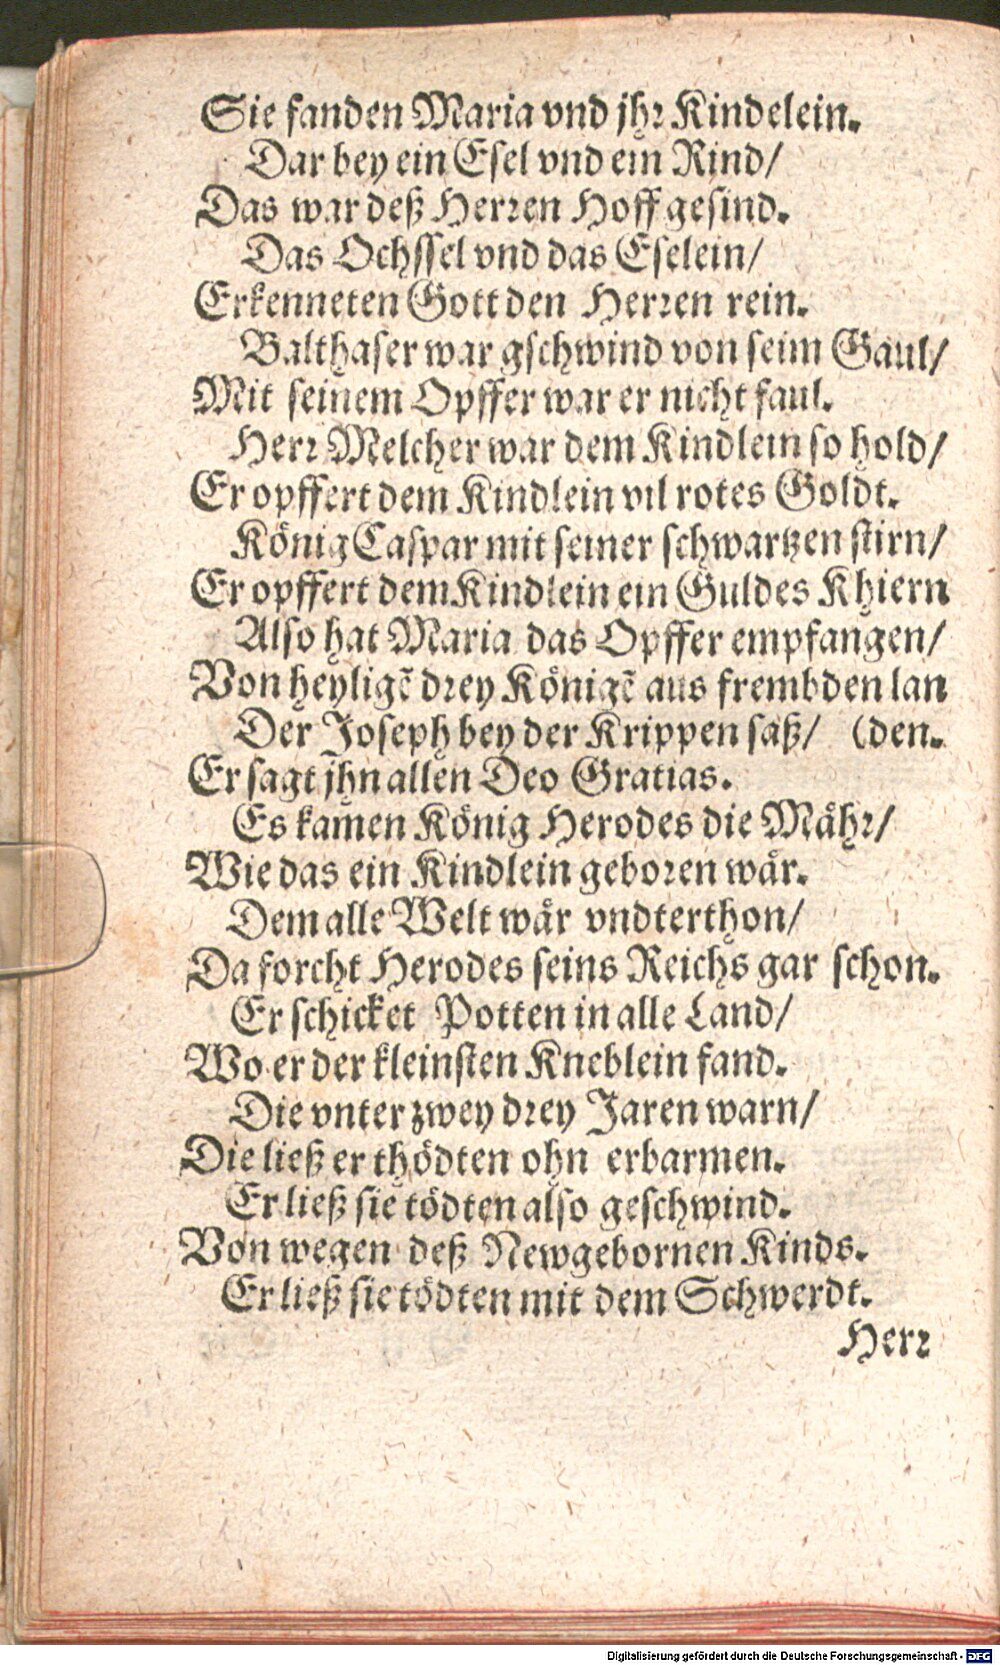 Sie fanden Maria vnd jhr Kindelein.
Dar bey ein Esel vnd ein Rind/
Das war deß Herren Hoffgesind.
Das Ochssel vnd das Eselein/
Erkenneten Gott den Herren rein.
Balthaser war gschwind von seim Gaul/
Mit seinem Opffer war er nicht faul.
Herr Melcher war dem Kindlein so hold/
Er opffert dem Kindlein vil rotes Goldt.
König Caspar mit seiner schwartzen stirn/
Er opffert dem Kindlein ein Guldes Khiern
Also hat Maria das Opffer empfangen/
Von heyligē drey Königē aus frembden lan
Der Joseph bey der Krippen saß/ (den.
Er sagt jhn allen Deo Gratias.
Es kamen König Herodes die Mähr/
Wie das ein Kindlein geboren wär.
Dem alle Welt wär vndterthon/
Da forcht Herodes seins Reichs gar schon.
Er schicket Potten in alle Land/
Wo er der kleinsten Kneblein fand.
Die vnter zwey drey Jaren warn/
Die ließ er thödten ohn erbarmen.
Er ließ sie tödten also geschwind.
Von wegen deß Newgebornen Kinds.
Er ließ sie tödten mit dem Schwerdt.
Herr
Digitalisierung gefördert durch die Deutsche Forschungsgemeinschaft - DFG